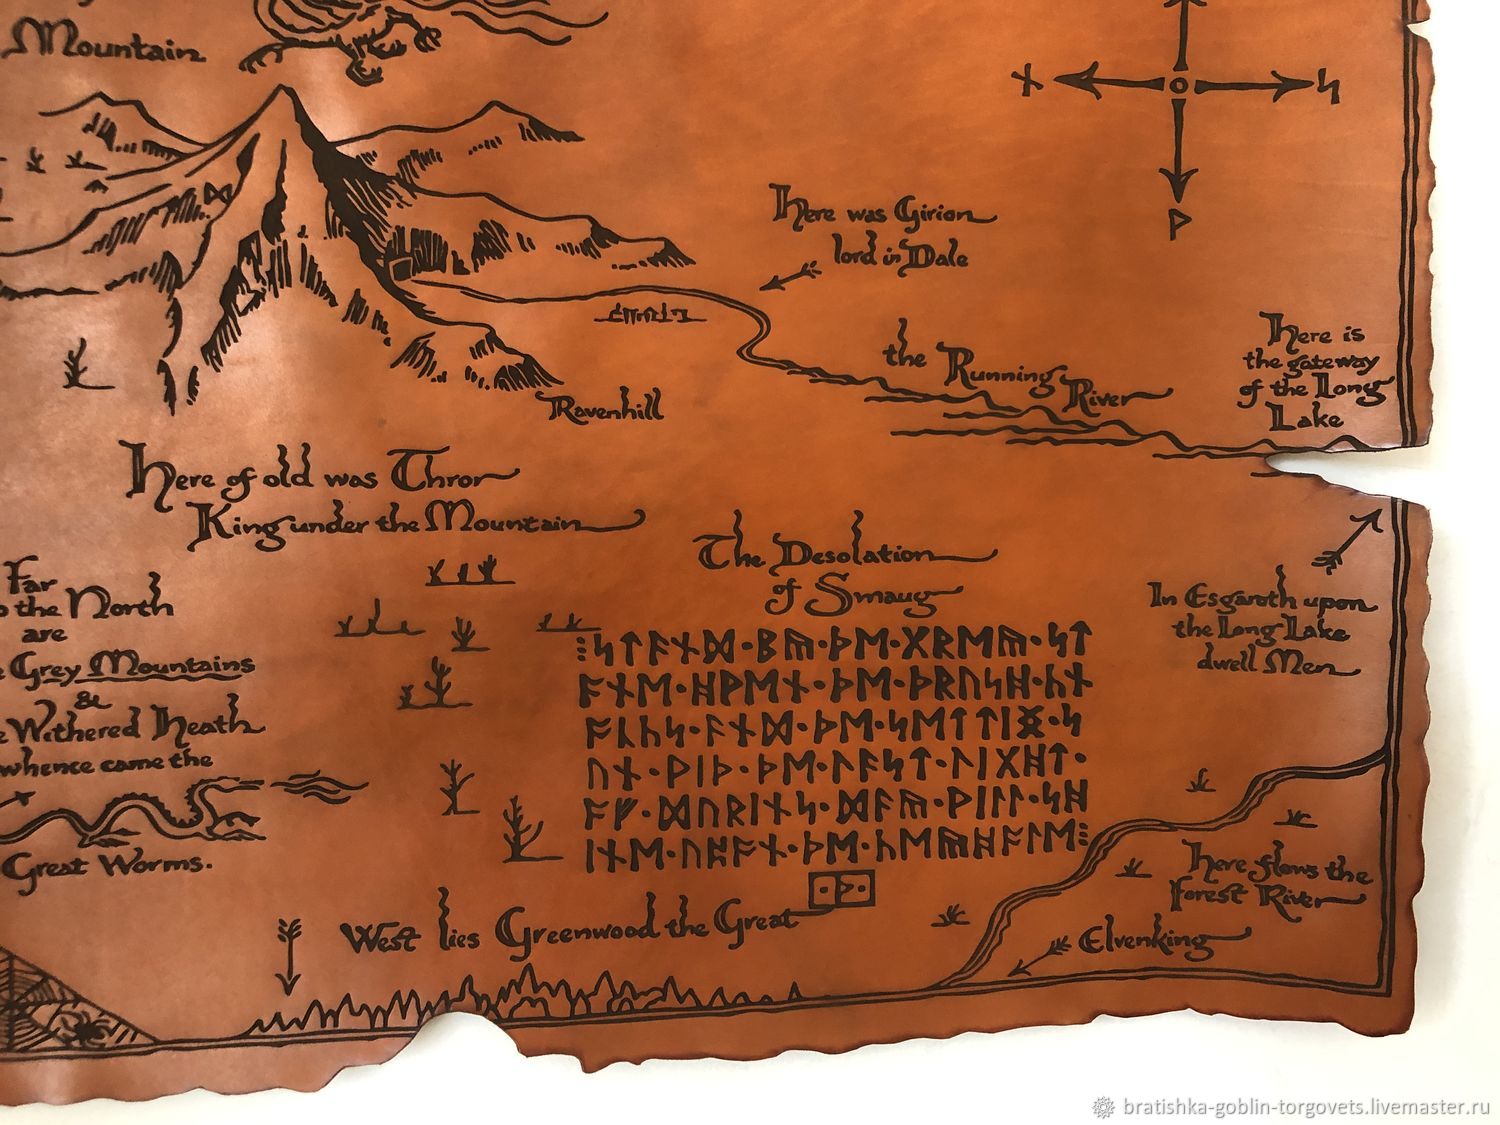 Mountain
ᚾ
ᛋ
ᚹ
Here was Girion
lord in Dale
the Running River
Here is
the gateway
of the Long
Lake
Ravenhill
Here of old was Thror
King under the Mountain
The Desolation
of Smaug
Far
the North
are
Grey Mountains
&
Withered Heath
whence came the
Great Worms.
In Esgaroth upon
the Long Lake
dwell Men
⁝ᛋᛏᚪᚾᛞ᛫ᛒᚣ᛫ᚦᛖ᛫ᚷᚱᛖᚣ᛫ᛋᛏ
ᚩᚾᛖ᛫ᚻᚹᛖᚾ᛫ᚦᛖ᛫ᚦᚱᚢᛋᚻ᛫ᚳᚾ
ᚩᚳᚳᛋ᛫ᚪᚾᛞ᛫ᚦᛖ᛫ᛋᛖᛏᛏᛁᛝ᛫ᛋ
ᚢᚾ᛫ᚹᛁᚦ᛫ᚦᛖ᛫ᛚᚪᛋᛏ᛫ᛚᛁᚷᚻᛏ᛫
ᚩᚠ᛫ᛞᚢᚱᛁᚾᛋ᛫ᛞᚪᚣ᛫ᚹᛁᛚᛚ᛫ᛋᚻ
ᛁᚾᛖ᛫ᚢᛈᚩᚾ᛫ᚦᛖ᛫ᚳᛖᚣᚻᚩᛚᛖ⁝
᛫ᚦ᛫
Here flows the
Forest River
West lies Greenwood the Great
Elvenking
bratishka-goblin-torgovets.livemaster.ru